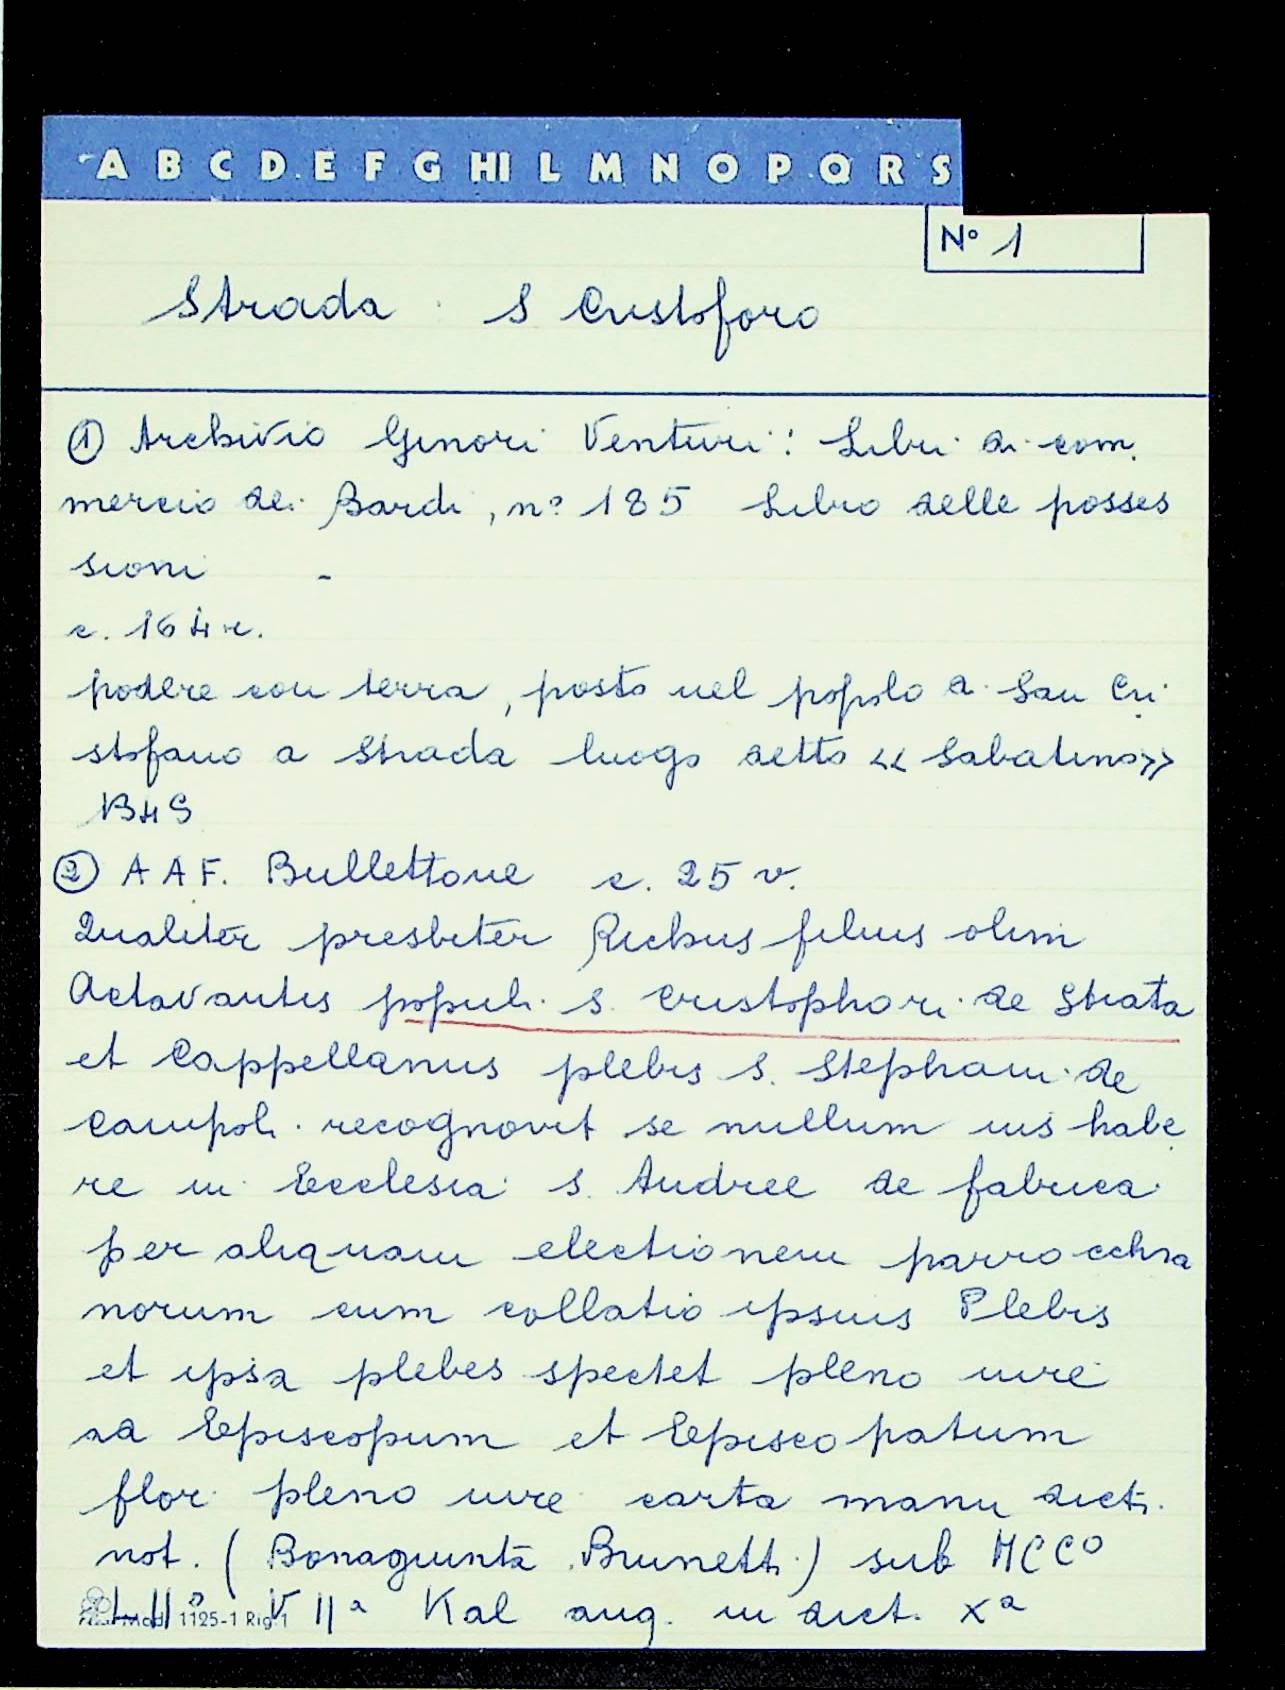 A B C D E F G HI L M N O P Q R S
N° 1
Strada S Cristoforo
① Archivio Ginori Venturi: Libri di com
mercio dei Bardi, n° 185 Libro delle posses
sioni -
c. 164 r.
podere con terra, posto nel popolo di San Cri
stofano a Strada luogo detto << Sabatino>>
② A A F. Bullettone c. 25 v.
Qualiter presbiter Richus filius olim
Actavantis populi s. Cristophori de Strata
et Cappellanus plebis s. Stephani de
Campoli recognovit se nullum ius habe
re in Ecclesia s. Andree de fabrica
per aliquam electionem parrocchia
norum cum collatio ipsius Plebis
et ipsa plebes spectet pleno iure
ad Episcopum et Episcopatum
flor pleno iure carta manu dicti
not. (Bonagiunta Brunetti) sub MCC°
LII° VIIª Kal aug. in dict. Xª
Mod. 1125-1 Rig. 1